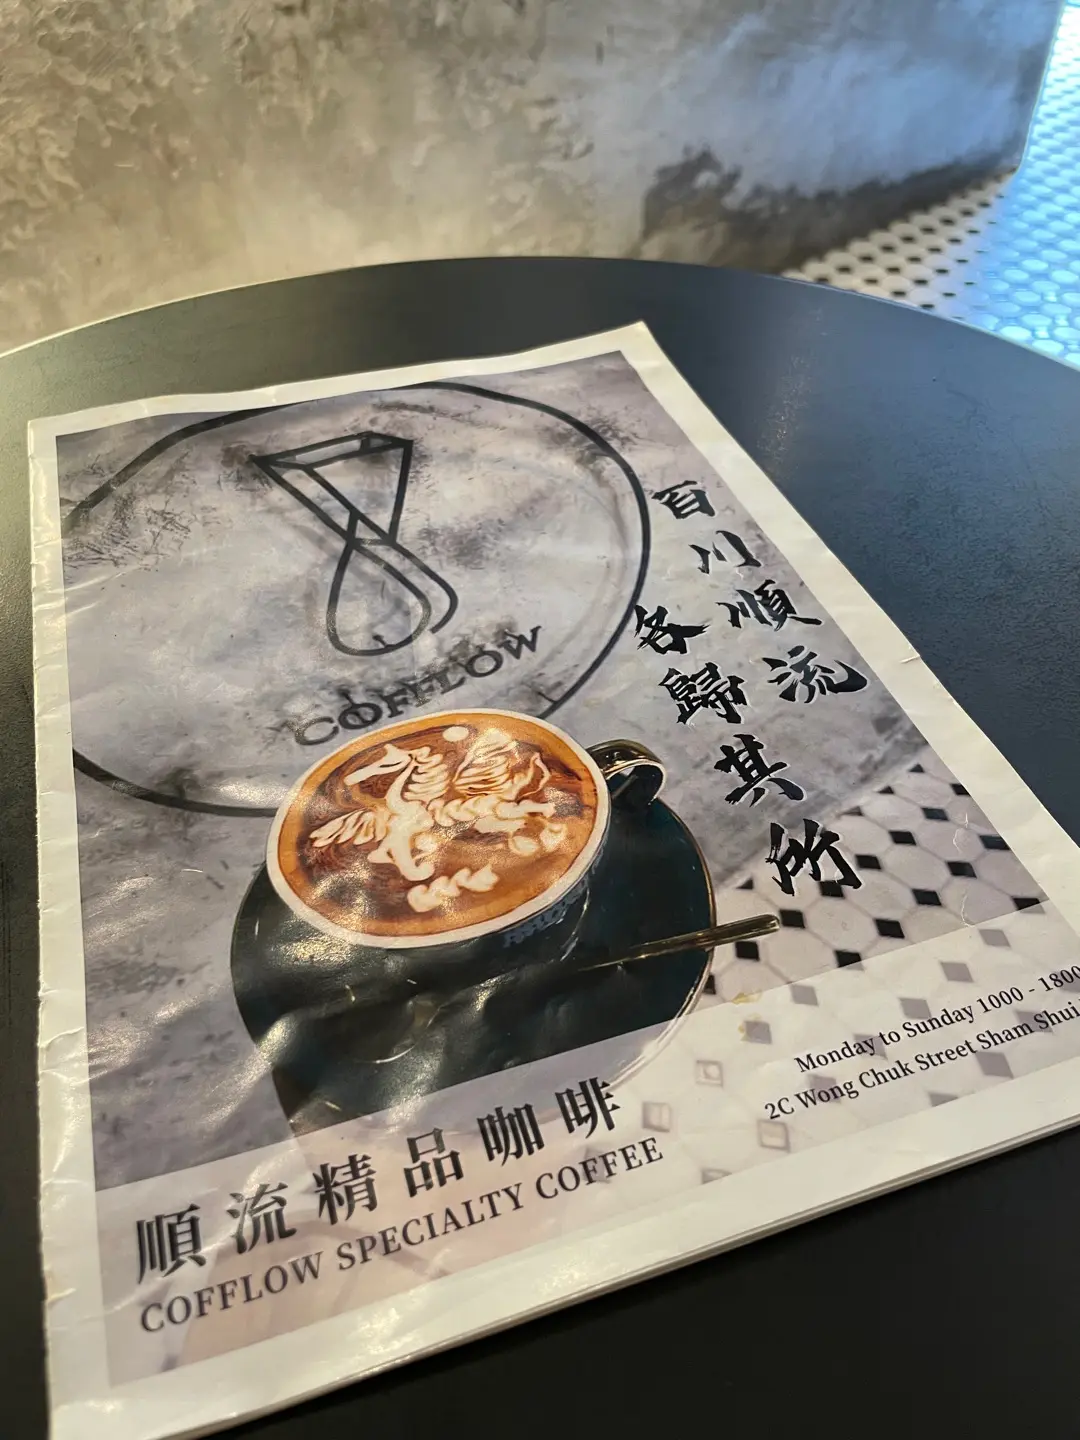 COFFLOW
百川順流
各歸其所
Monday to Sunday 1000 - 1800
2C Wong Chuk Street Sham Shui
順流精品咖啡
COFFLOW SPECIALTY COFFEE